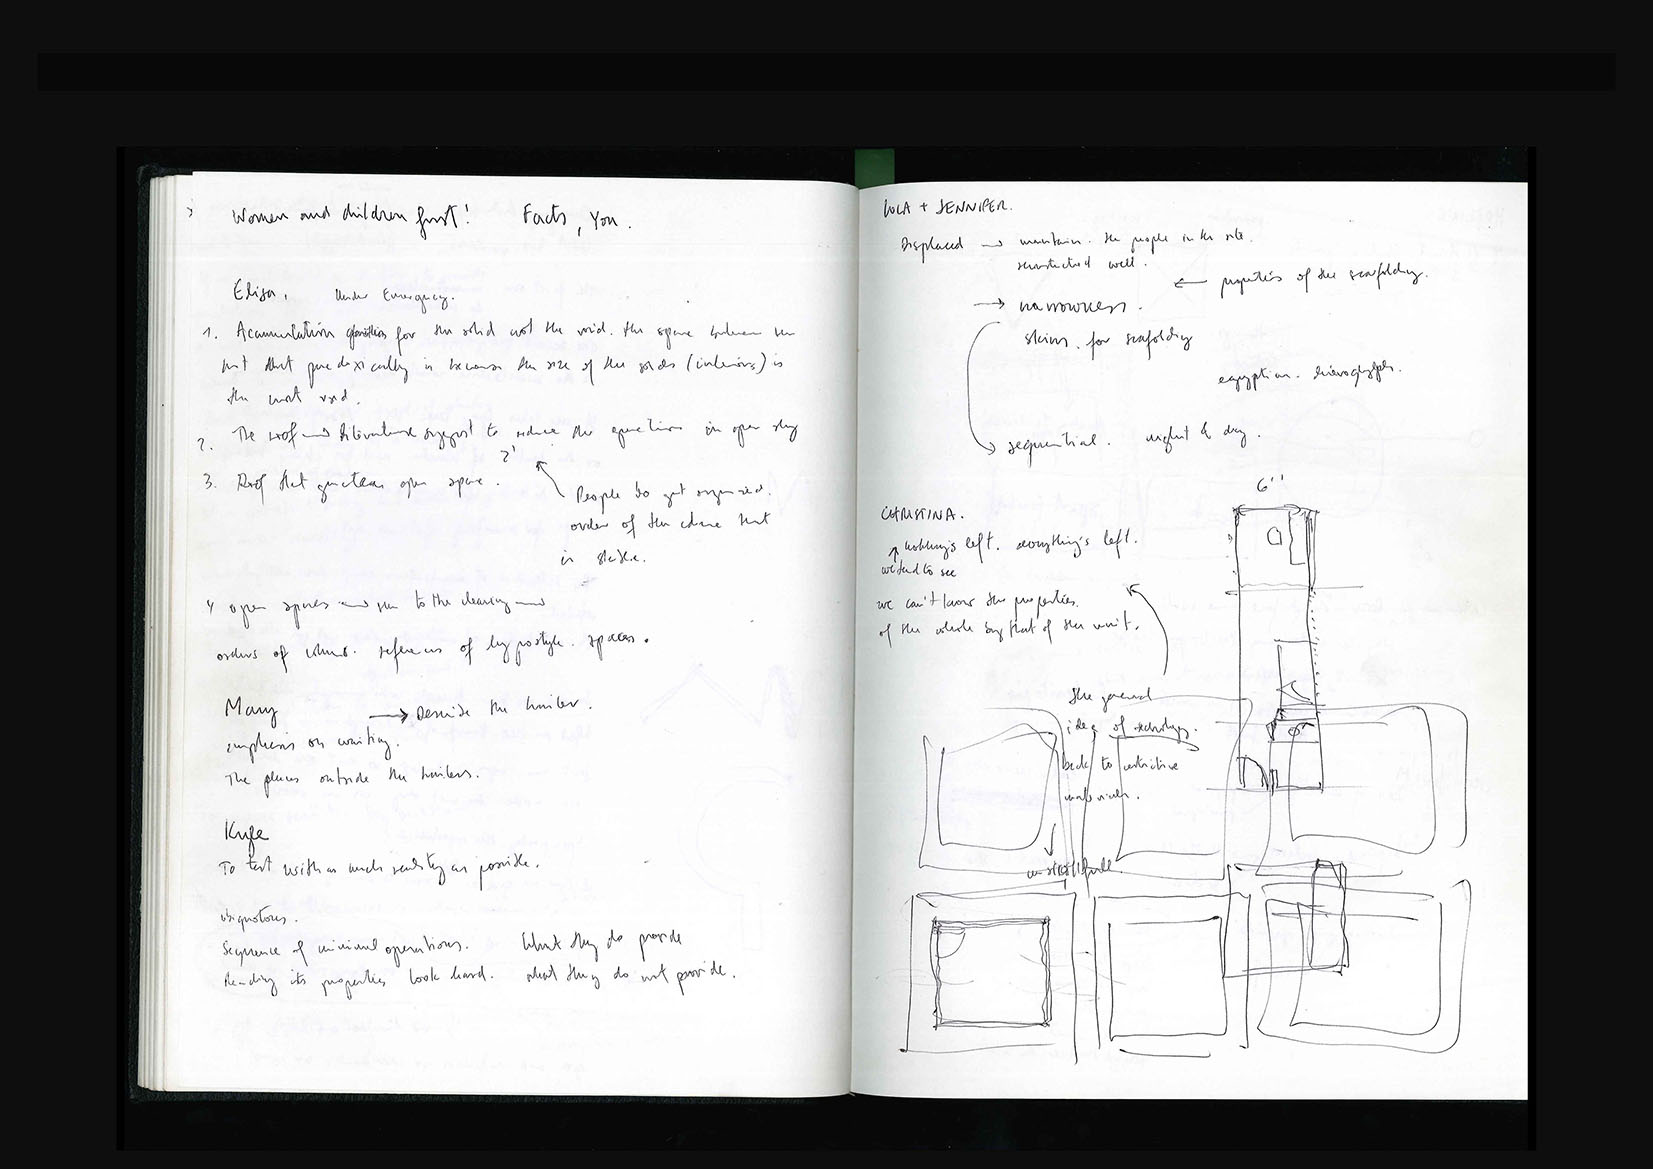 Women and children first! Facts, You.
Elisa. Under Emergency.
1. Accumulation for the solid not the void. the space between the
not that paradoxically is because the size of the solids (interiors) is
the most void.
2. The roof → support to reduce the operations in open sky
2'
3. Roof that open space.
People do get organized.
order of the that
is stable.
4 open spaces → to the clearing →
orders of columns. references of hypostyle. spaces.
Mary → Describe the trailer.
emphasis on waiting.
The places outside the trailers.
Kyle
To test with as much reality as possible.
Sequence of minimal operations. What they do provide
Reading its properties look hard. what they do not provide.
LOLA + JENNIFER.
Displaced → maintain. the people in the site.
well.
← properties of the scaffolding.
→ narrowness.
skins. for scaffolding
egyptian. hieroglyphs.
sequential. night & day.
6''
CHRISTINA.
nothing's left. everything's left.
we tend to see
we can't know the properties.
of the whole by that of the unit.
the general
idea of technology.
back to
materials.